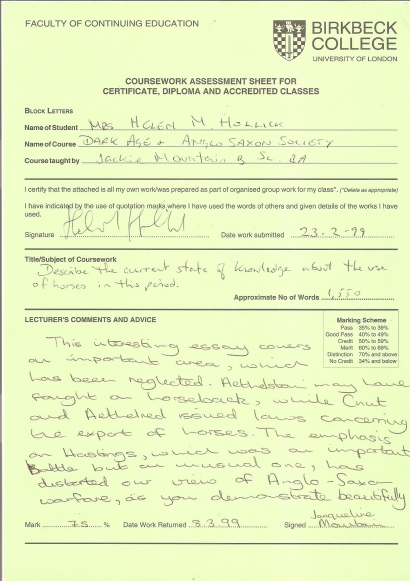 FACULTY OF CONTINUING EDUCATION
BIRKBECK
COLLEGE
UNIVERSITY OF LONDON
COURSEWORK ASSESSMENT SHEET FOR
CERTIFICATE, DIPLOMA AND ACCREDITED CLASSES
BLOCK LETTERS
Name of Student MRS HELEN M. HOLLICK
Name of Course DARK AGE & ANGLO SAXON SOCIETY
Course taught by Jackie Mountain B Sc. BA
I certify that the attached is all my own work/was prepared as part of organised group work for my class*. (*Delete as appropriate)
I have indicated by the use of quotation marks where I have used the words of others and given details of the works I have
used.
Signature Date work submitted 23.2-99
Title/Subject of Coursework
Describe the current state of knowledge about the use
of horses in this period.
Approximate No of Words 1,550
LECTURER'S COMMENTS AND ADVICE
Marking Scheme
Pass 35% to 39%
Good Pass 40% to 49%
Credit 50% to 59%
Merit 60% to 69%
Distinction 70% and above
No Credit 34% and below
This interesting essay covers
an important area, which
has been neglected. Aethelstan may have
fought on horseback, while Cnut
and Aethelred issued laws concerning
the export of horses. The emphasis
on Hastings, which was an important
Battle but an unusual one, has
distorted our view of Anglo-Saxon
warfare, as you demonstrate beautifully
Mark 75 % Date Work Returned 8.3.99 Signed Jacqueline
Mountain